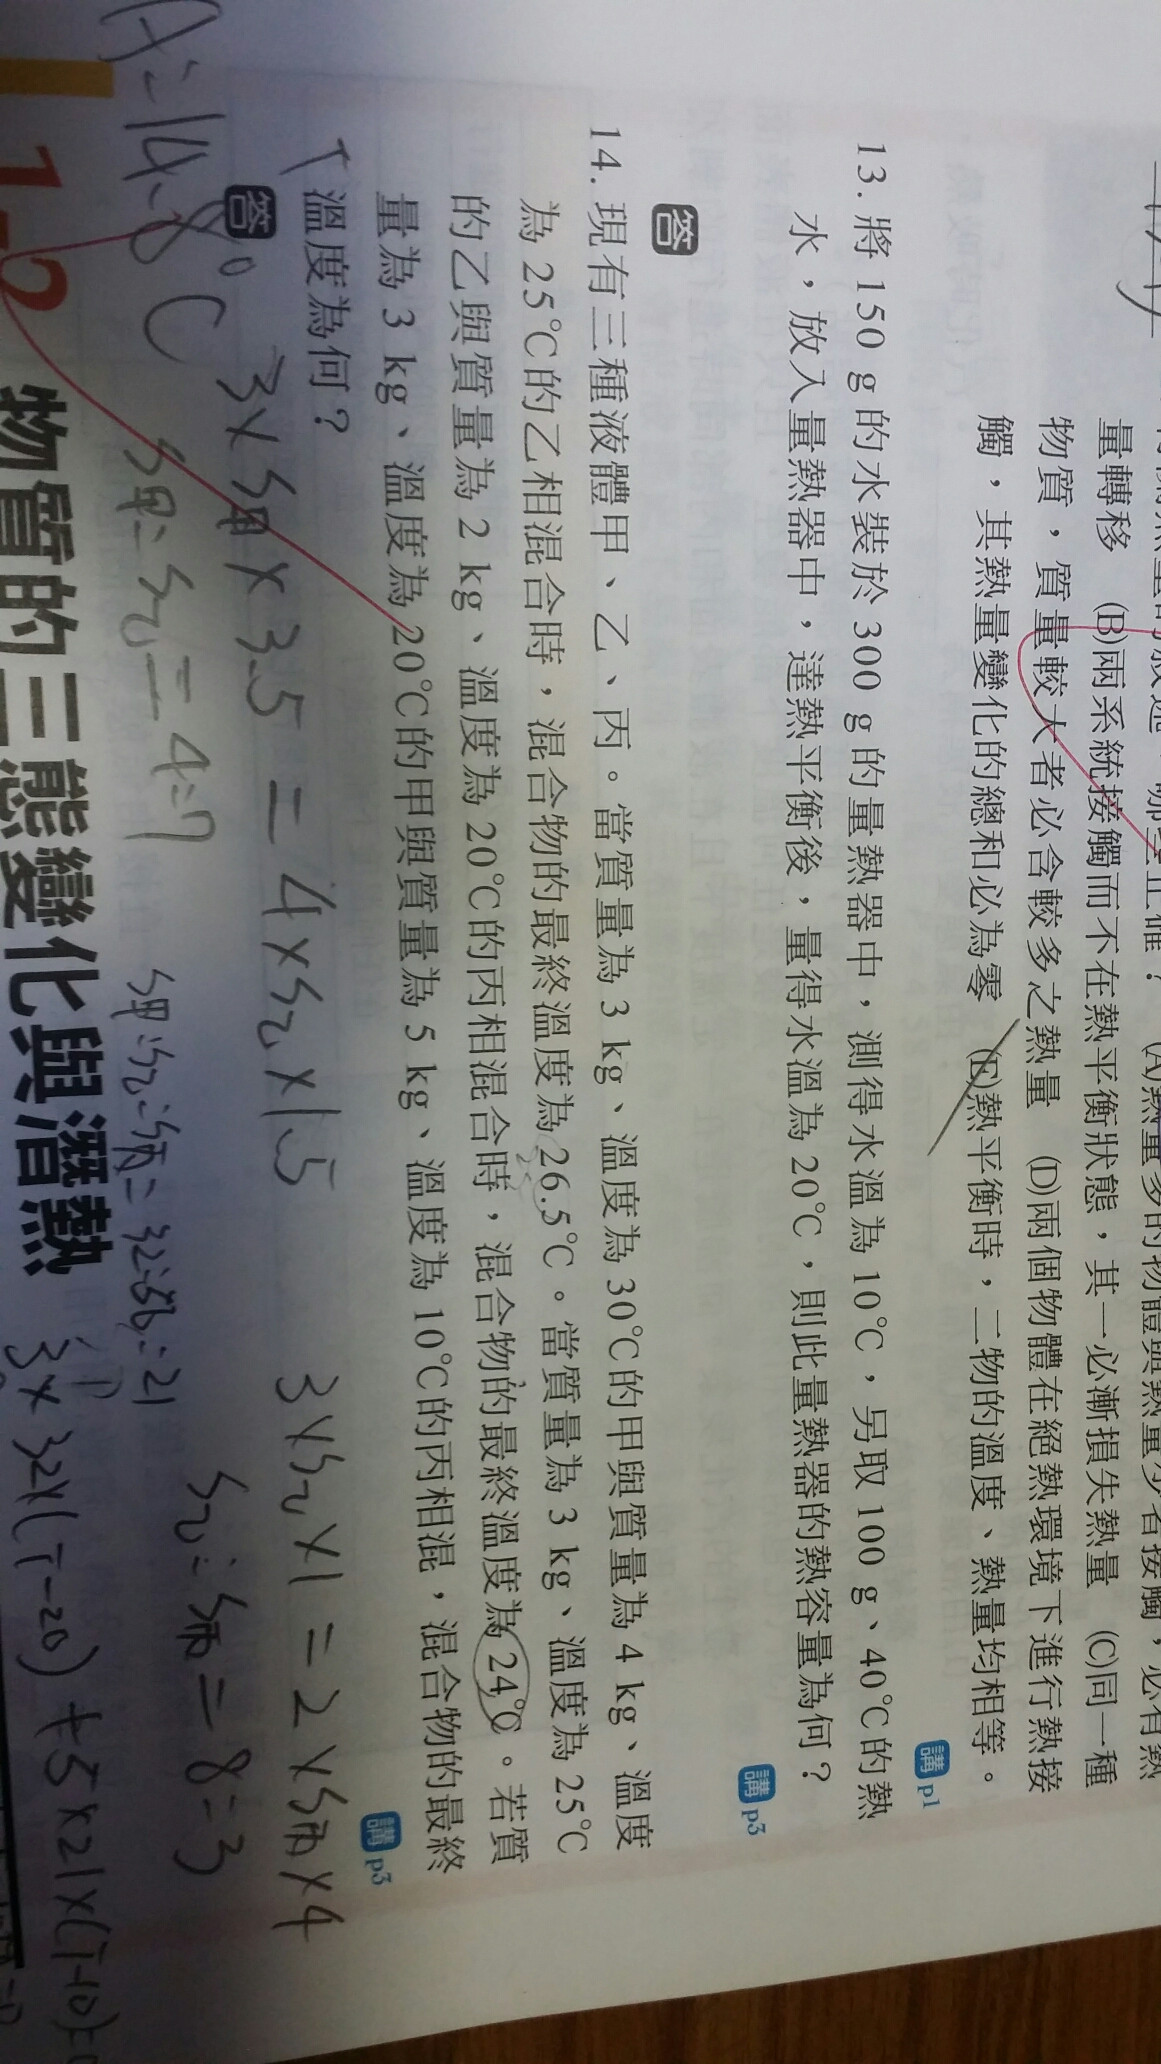 量轉移 (B)兩系統接觸而不在熱平衡狀態，其一必漸損失熱量 (C)同一種
物質，質量較大者必含較多之熱量 (D)兩個物體在絕熱環境下進行熱接
觸，其熱量變化的總和必為零 (E)熱平衡時，二物的溫度、熱量均相等。
講 p1
13. 將 150 g 的水裝於 300 g 的量熱器中，測得水溫為 10℃，另取 100 g、40℃的熱
水，放入量熱器中，達熱平衡後，量得水溫為 20℃，則此量熱器的熱容量為何？
講 p3
答
14. 現有三種液體甲、乙、丙。當質量為 3 kg、溫度為 30℃的甲與質量為 4 kg、溫度
為 25℃的乙相混合時，混合物的最終溫度為 26.5℃。當質量為 3 kg、溫度為 25℃
的乙與質量為 2 kg、溫度為 20℃的丙相混合時，混合物的最終溫度為 24℃。若質
量為 3 kg、溫度為 20℃的甲與質量為 5 kg、溫度為 10℃的丙相混，混合物的最終
溫度為何？
講 p3
答
3×S甲×3.5=4×S乙×1.5
3×S乙×1=2×S丙×4
S甲:S乙=4:7
S乙:S丙=8:3
S甲:S乙:S丙=32:56:21
3×32×(T-20)+5×21×(T-10)=0
T=14.8°C
1-2 物質的三態變化與潛熱